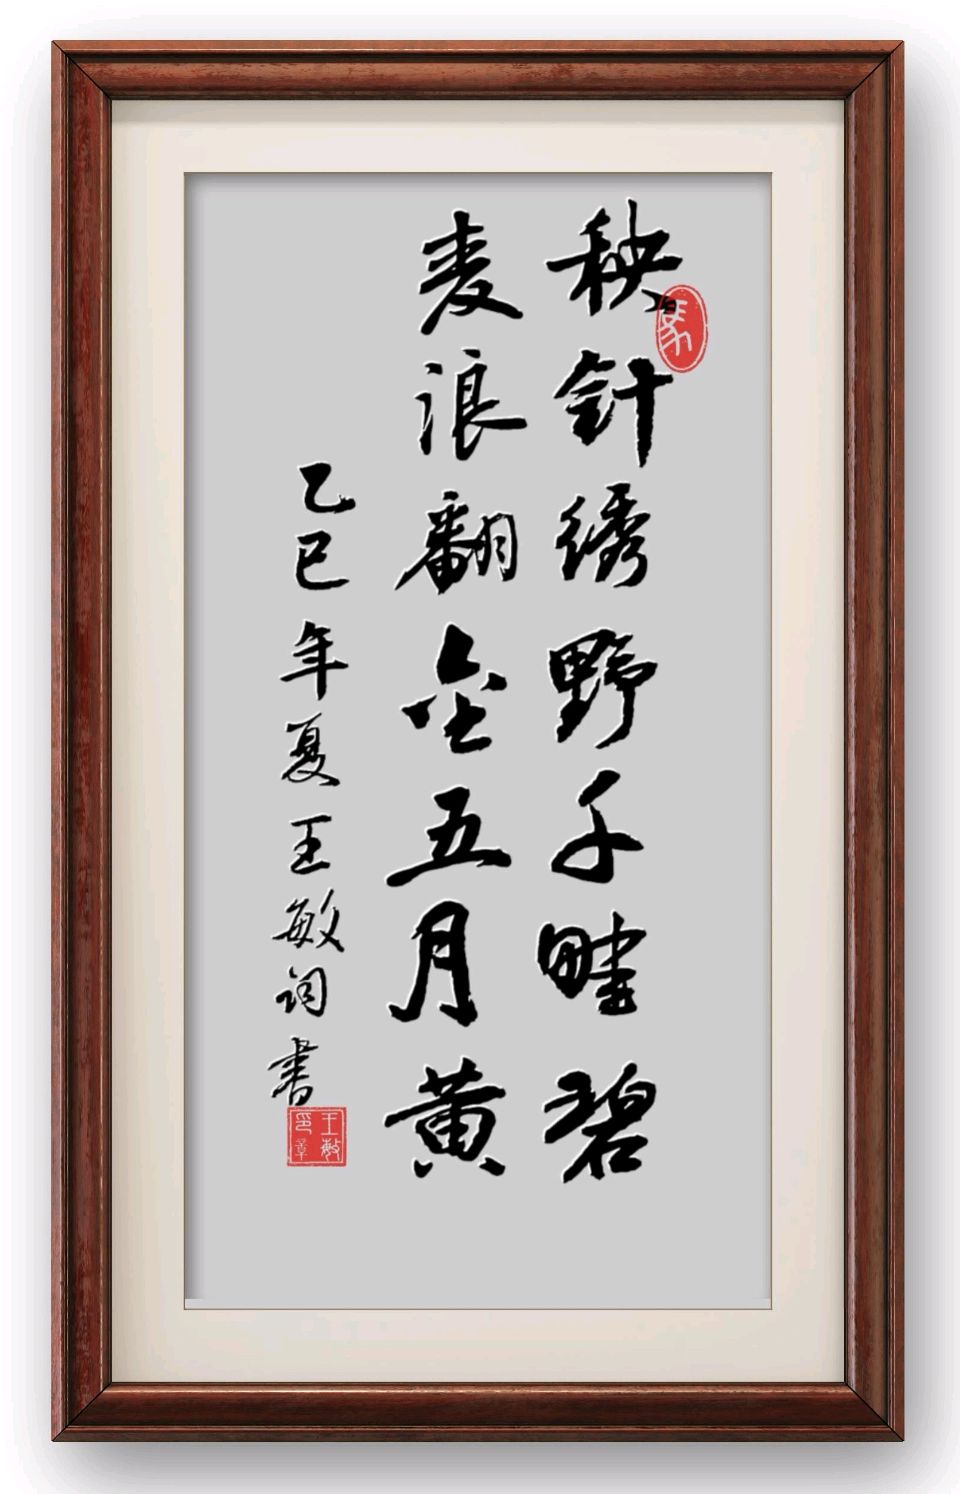 秧针绣野千畦碧
麦浪翻金五月黄
乙巳年夏王敏词书
王敏印章